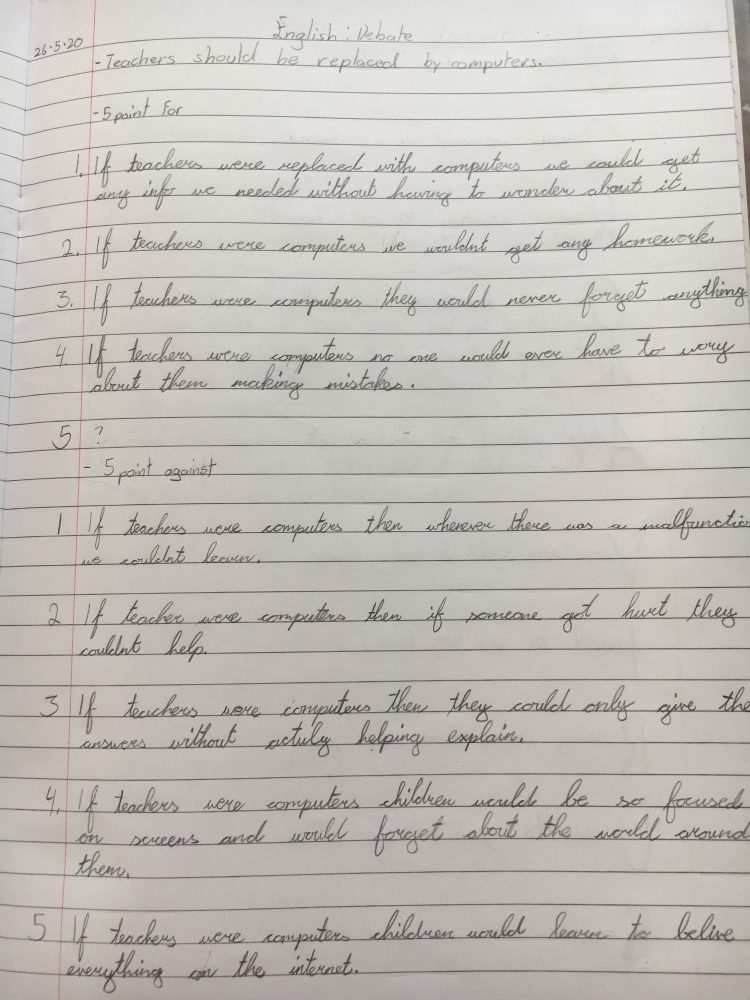 English : Debate
26.5.20
- Teachers should be replaced by computers.
- 5 point For
1. If teachers were replaced with computers we could get
any info we needed without having to wonder about it.
2. If teachers were computers we wouldnt get any homework.
3. If teachers were computers they would never forget anything
4. If teachers were computers no one would ever have to wory
about them making mistakes.
5 ?
- 5 point against
1 If teachers were computers then whenever there was a malfunctio
we couldnt learn.
2 If teacher were computers then if someone got hurt they
couldnt help.
3 If teachers were computers then they could only give the
answers without actuly helping explain.
4. If teachers were computers children would be so focused
on screens and would forget about the world around
them.
5 If teachers were computers children would learn to belive
everything on the internet.